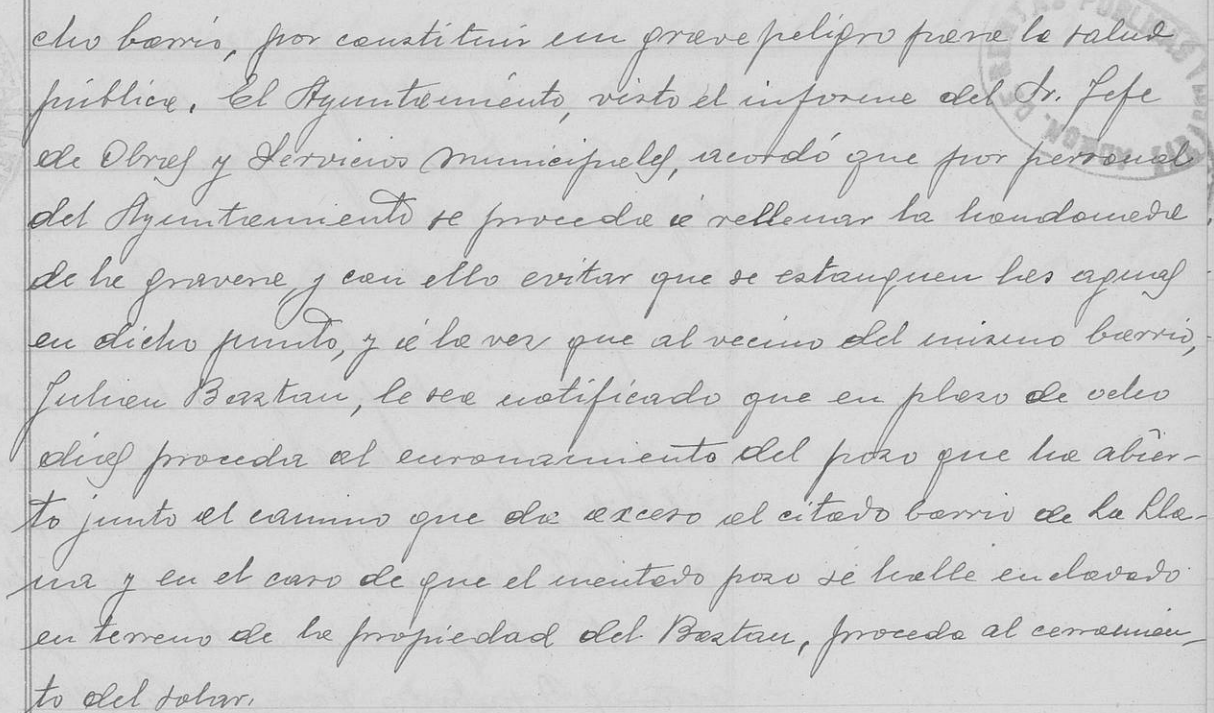 cho barrio, por constituir un grave peligro para la salud
pública. El Ayuntamiento, visto el informe del Sr. Jefe
de Obras y Servicios Municipales, acordó que por personal
del Ayuntamiento se proceda a rellenar la hondonada
de la gravera y con ello evitar que se estanquen las aguas
en dicho punto, y a la vez que al vecino del mismo barrio,
Julian Baztan, le sea notificado que en plazo de ocho
dias proceda al enronamiento del pozo que ha abier-
to junto al camino que da acceso al citado barrio de La Lla-
na y en el caso de que el mentado pozo se halle enclavado
en terreno de la propiedad del Baztan, proceda al cerramien-
to del solar.